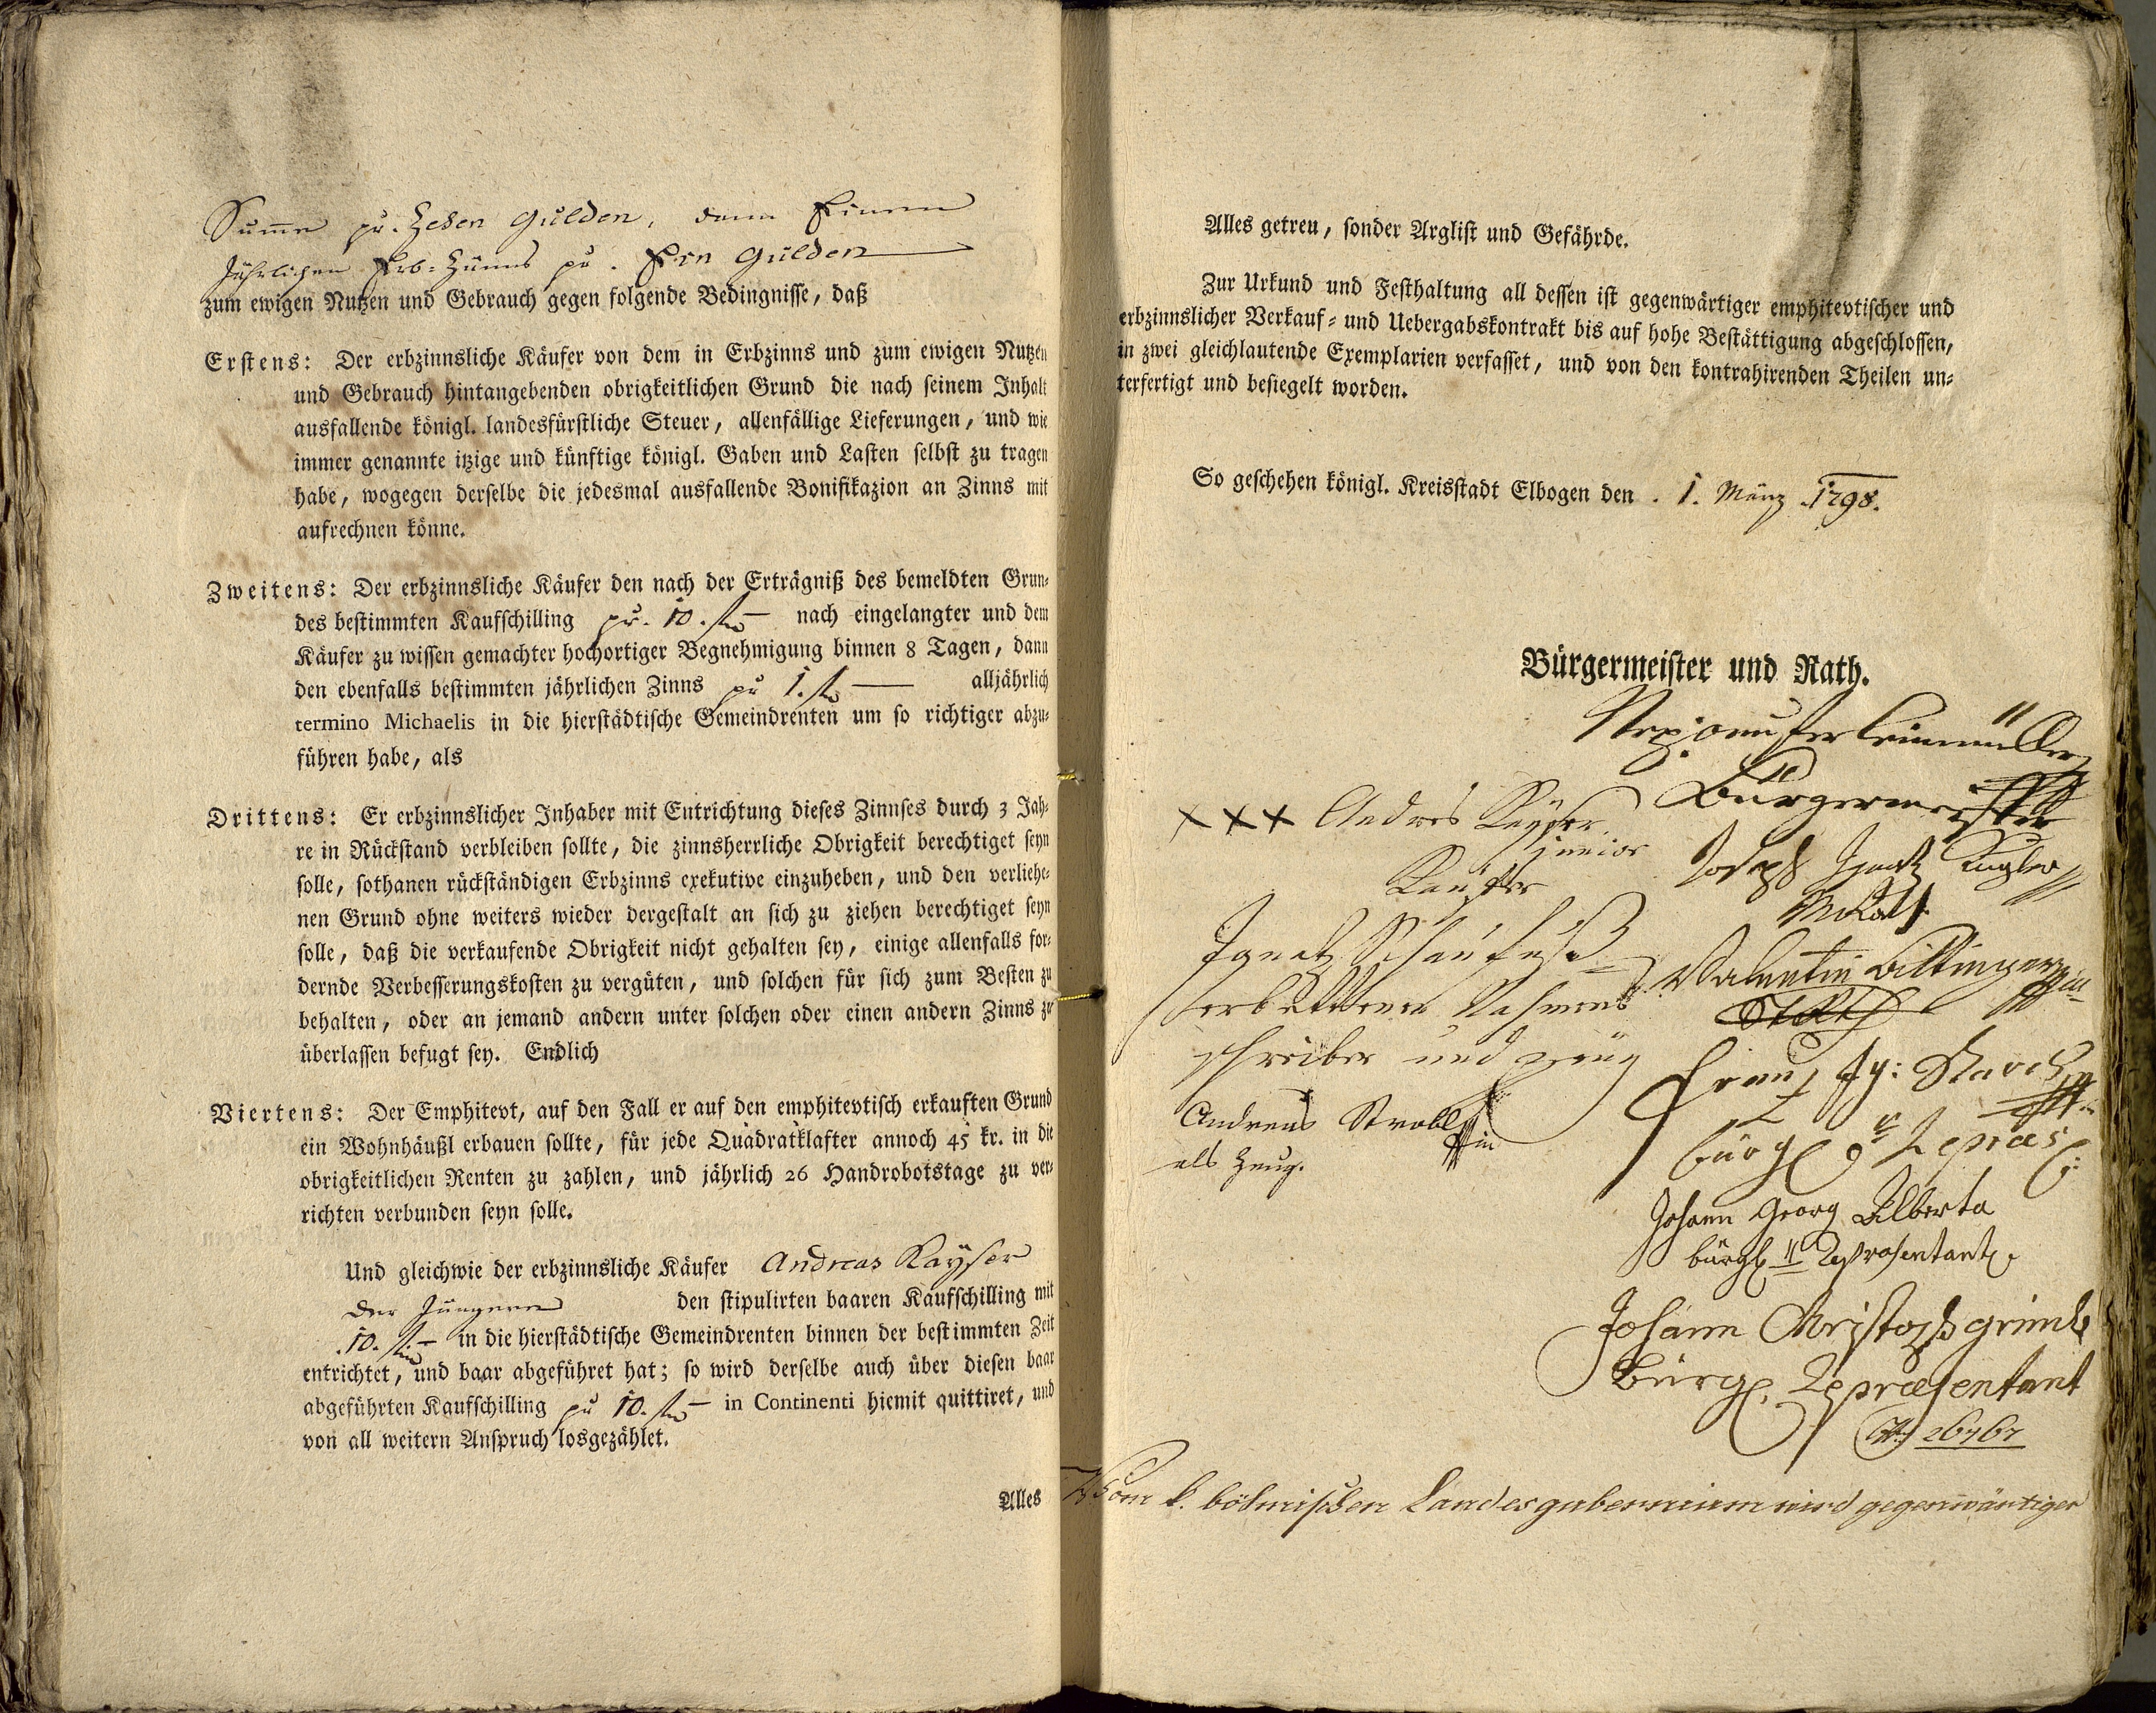 Summe pr. Zehen Gulden, dann Einem
Jährlichen Erb-Zünns pr. Ein Gulden
zum ewigen Nutzen und Gebrauch gegen folgende Bedingnisse, daß
Erstens: Der erbzinnsliche Käufer von dem in Erbzinns und zum ewigen Nutzen
und Gebrauch hintangebenden obrigkeitlichen Grund die nach seinem Inhalt
ausfallende königl. landesfürstliche Steuer, allenfällige Lieferungen, und wie
immer genannte itzige und künftige königl. Gaben und Lasten selbst zu tragen
habe, wogegen derselbe die jedesmal ausfallende Bonifikazion an Zinns mit
aufrechnen könne.
Zweitens: Der erbzinnsliche Käufer den nach der Erträgniß des bemeldten Grun-
des bestimmten Kaufschilling pr. 10. f. nach eingelangter und dem
Käufer zu wissen gemachter hochortiger Begnehmigung binnen 8 Tagen, dann
den ebenfalls bestimmten jährlichen Zinns pr 1. f. alljährlich
termino Michaelis in die hierstädtische Gemeindrenten um so richtiger abzu-
führen habe, als
Drittens: Er erbzinnslicher Inhaber mit Entrichtung dieses Zinnses durch 3 Jah-
re in Rückstand verbleiben sollte, die zinnsherrliche Obrigkeit berechtiget seyn
solle, sothanen rückständigen Erbzinns exekutive einzuheben, und den verliehe-
nen Grund ohne weiters wieder dergestalt an sich zu ziehen berechtiget seyn
solle, daß die verkaufende Obrigkeit nicht gehalten sey, einige allenfalls for-
dernde Verbesserungskosten zu vergüten, und solchen für sich zum Besten zu
behalten, oder an jemand andern unter solchen oder einen andern Zinns zu
überlassen befugt sey. Endlich
Viertens: Der Emphitevt, auf den Fall er auf den emphitevtisch erkauften Grund
ein Wohnhäußl erbauen sollte, für jede Quadratklafter annoch 45 kr. in die
obrigkeitlichen Renten zu zahlen, und jährlich 26 Handrobotstage zu ver-
richten verbunden seyn solle.
Und gleichwie der erbzinnsliche Käufer Andreas Kayser
der Jüngere den stipulirten baaren Kaufschilling mit
10. f. in die hierstädtische Gemeindrenten binnen der bestimmten Zeit
entrichtet, und baar abgeführet hat; so wird derselbe auch über diesen baar
abgeführten Kaufschilling pr 10. f. in Continenti hiemit quittiret, und
von all weitern Anspruch losgezählet.
Alles
Alles getreu, sonder Arglist und Gefährde.
Zur Urkund und Festhaltung all dessen ist gegenwärtiger emphitevtischer und
erbzinnslicher Verkauf- und Uebergabskontrakt bis auf hohe Bestättigung abgeschlossen,
in zwei gleichlautende Exemplarien verfasset, und von den kontrahirenden Theilen un-
terfertigt und besiegelt worden.
So geschehen königl. Kreisstadt Elbogen den 1. März 1798.
Bürgermeister und Rath.
Bürgermeister
xxx Andres Kayser
junior
Käufer
Joseph Ignatz
Ignatz
Valentin
erbettener Nahmens
schreiber und zeüg
Franz Ig:
bürgl. Repraes:
Andreas Strobl
als Zeug.
Johann Georg Alberta
bürgl. Repräsentant.
Johann Christoph
Bürgl. Repraesentant
Vom k. böhmischen Landesgubernium wird gegenwärtiger